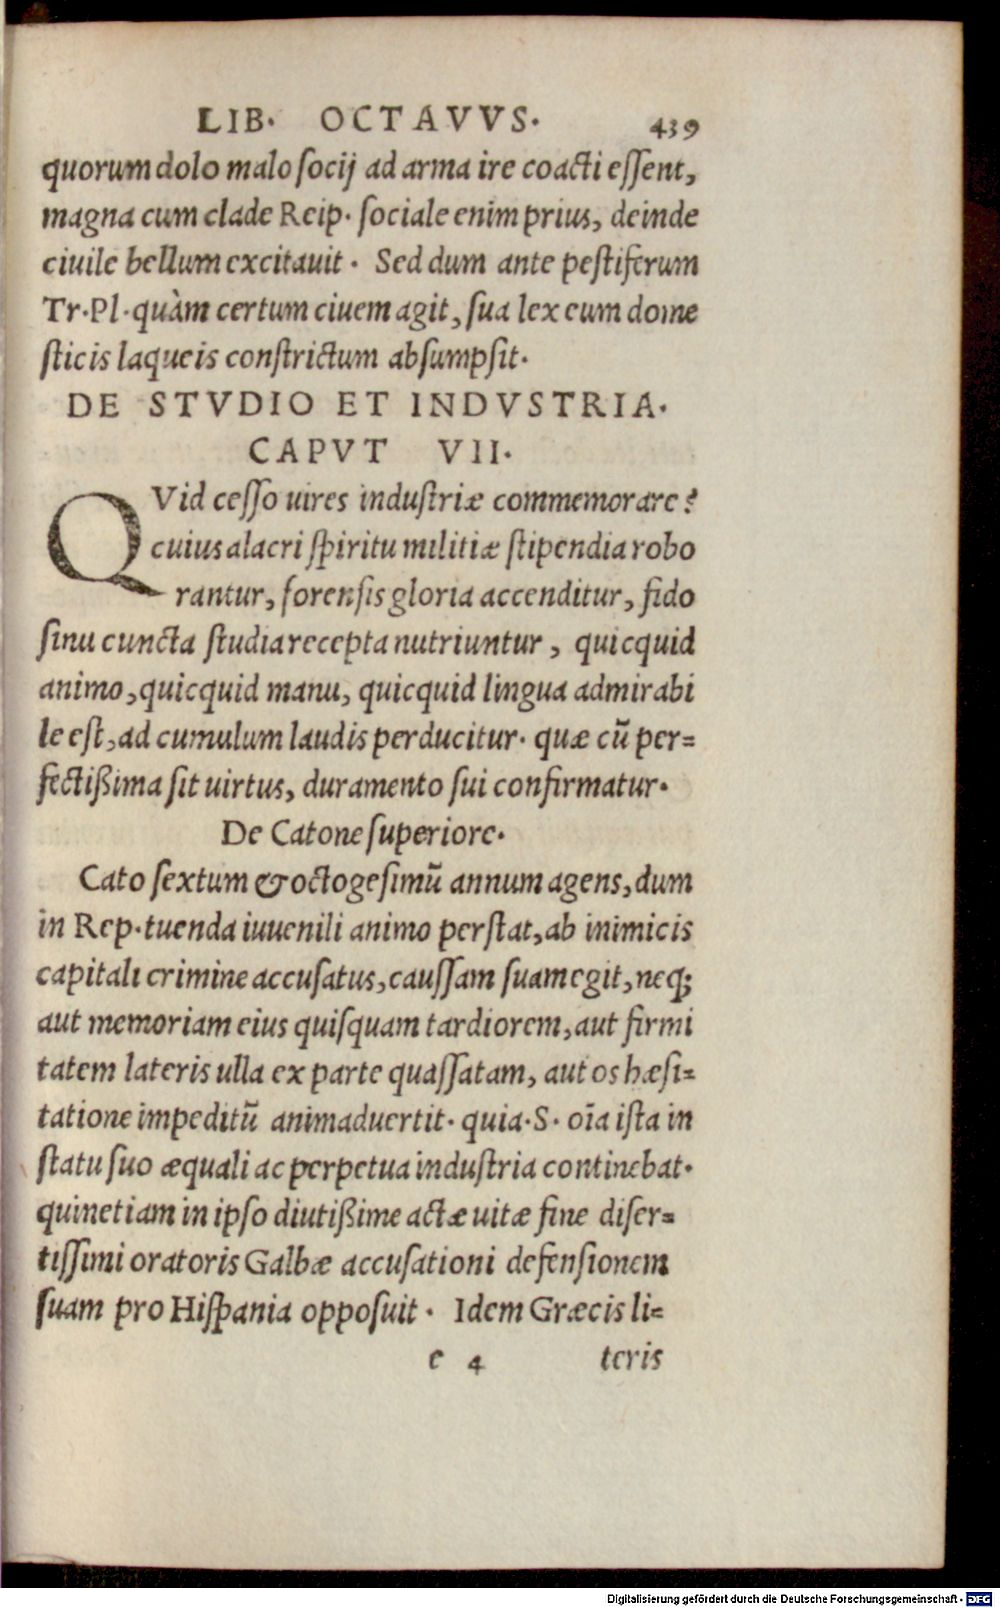 LIB. OCTAVVS. 439
quorum dolo malo socij ad arma ire coacti essent,
magna cum clade Reip. sociale enim prius, deinde
ciuile bellum excitauit. Sed dum ante pestiferum
Tr.Pl.quàm certum ciuem agit, sua lex eum dome
sticis laqueis constrictum absumpsit.
DE STVDIO ET INDVSTRIA.
CAPVT VII.
QVid cesso uires industriæ commemorare?
cuius alacri spiritu militiæ stipendia robo
rantur, forensis gloria accenditur, fido
sinu cuncta studia recepta nutriuntur, quicquid
animo, quicquid manu, quicquid lingua admirabi
le est, ad cumulum laudis perducitur. quæ cũ per=
fectißima sit uirtus, duramento sui confirmatur.
De Catone superiore.
Cato sextum & octogesimũ annum agens, dum
in Rep.tuenda iuuenili animo perstat, ab inimicis
capitali crimine accusatus, caussam suam egit, neq;
aut memoriam eius quisquam tardiorem, aut firmi
tatem lateris ulla ex parte quassatam, aut os hæsi=
tatione impeditũ animaduertit. quia.S. oĩa ista in
statu suo æquali ac perpetua industria continebat.
quinetiam in ipso diutißime actæ uitæ fine diser=
tissimi oratoris Galbæ accusationi defensionem
suam pro Hispania opposuit. Idem Græcis li=
e 4 teris
Digitalisierung gefördert durch die Deutsche Forschungsgemeinschaft - DFG